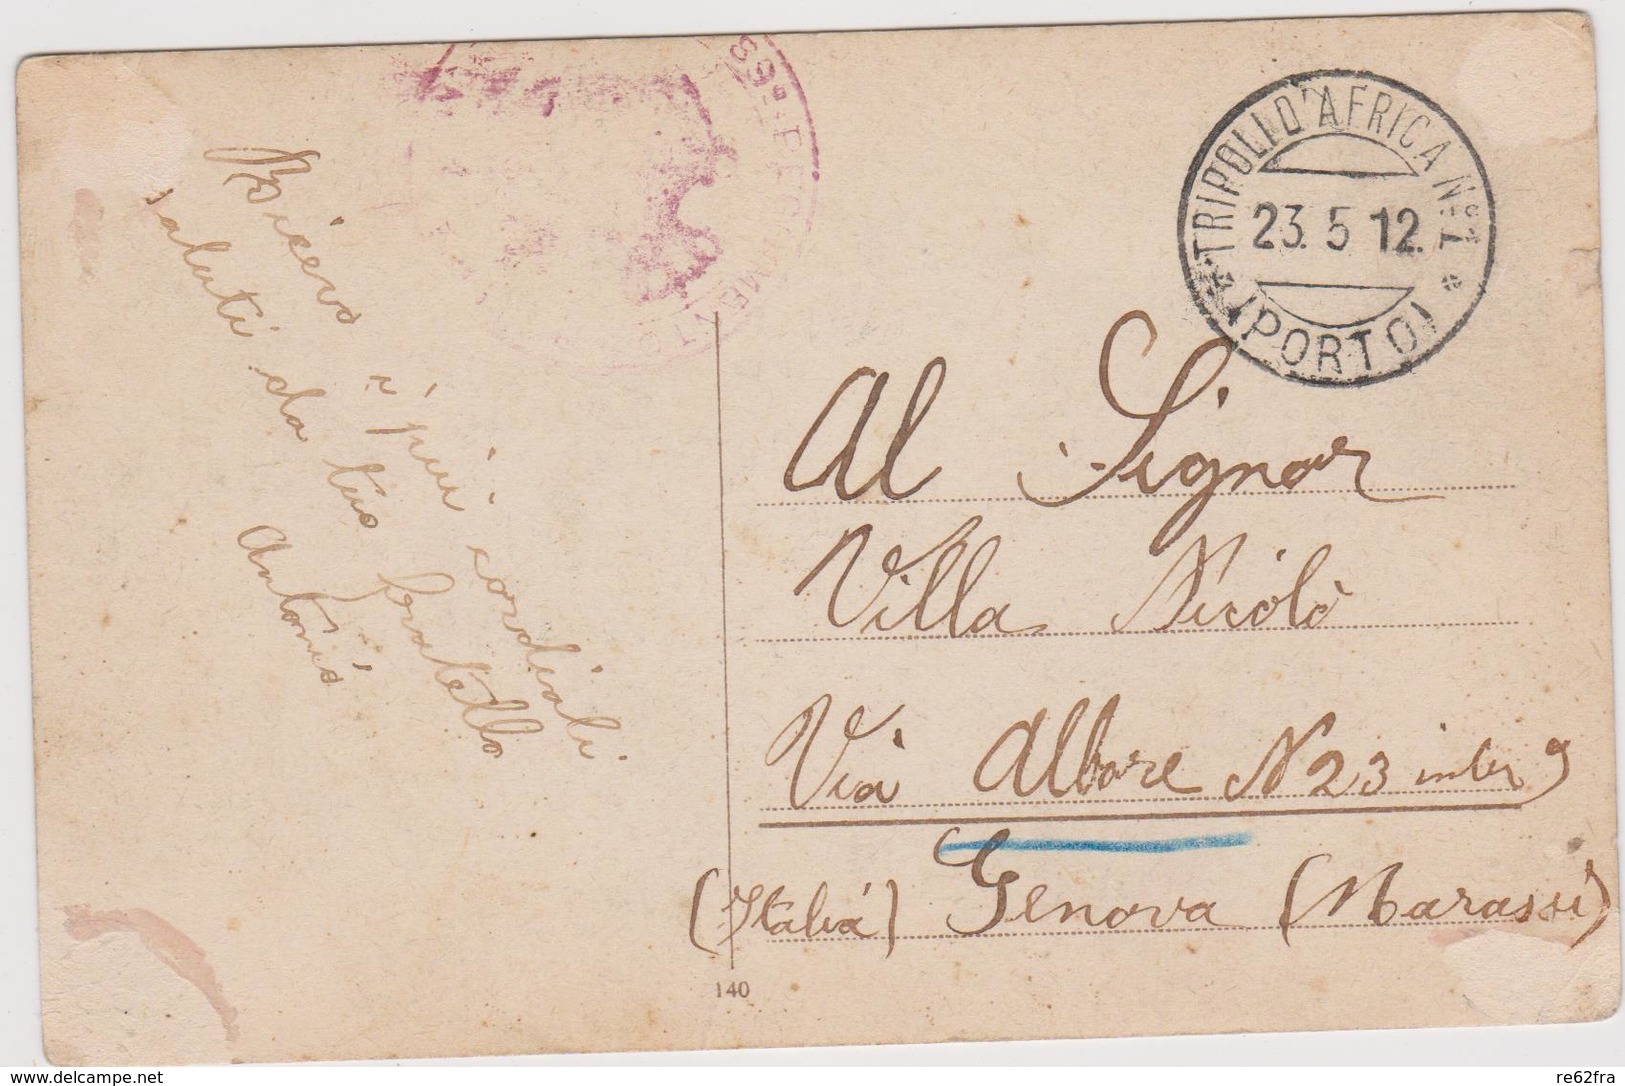 89° REGGIMENTO
TRIPOLI D'AFRICA N.° 1
23. 5 12.
(PORTO)
Ricevi i più cordiali
saluti da tuo fratello
Antonio
Al Signor
Villa Nicolò
Via Albare N 23 inter 9
(Italiá) Genova (Marassi)
140
www.delcampe.net
re62fra